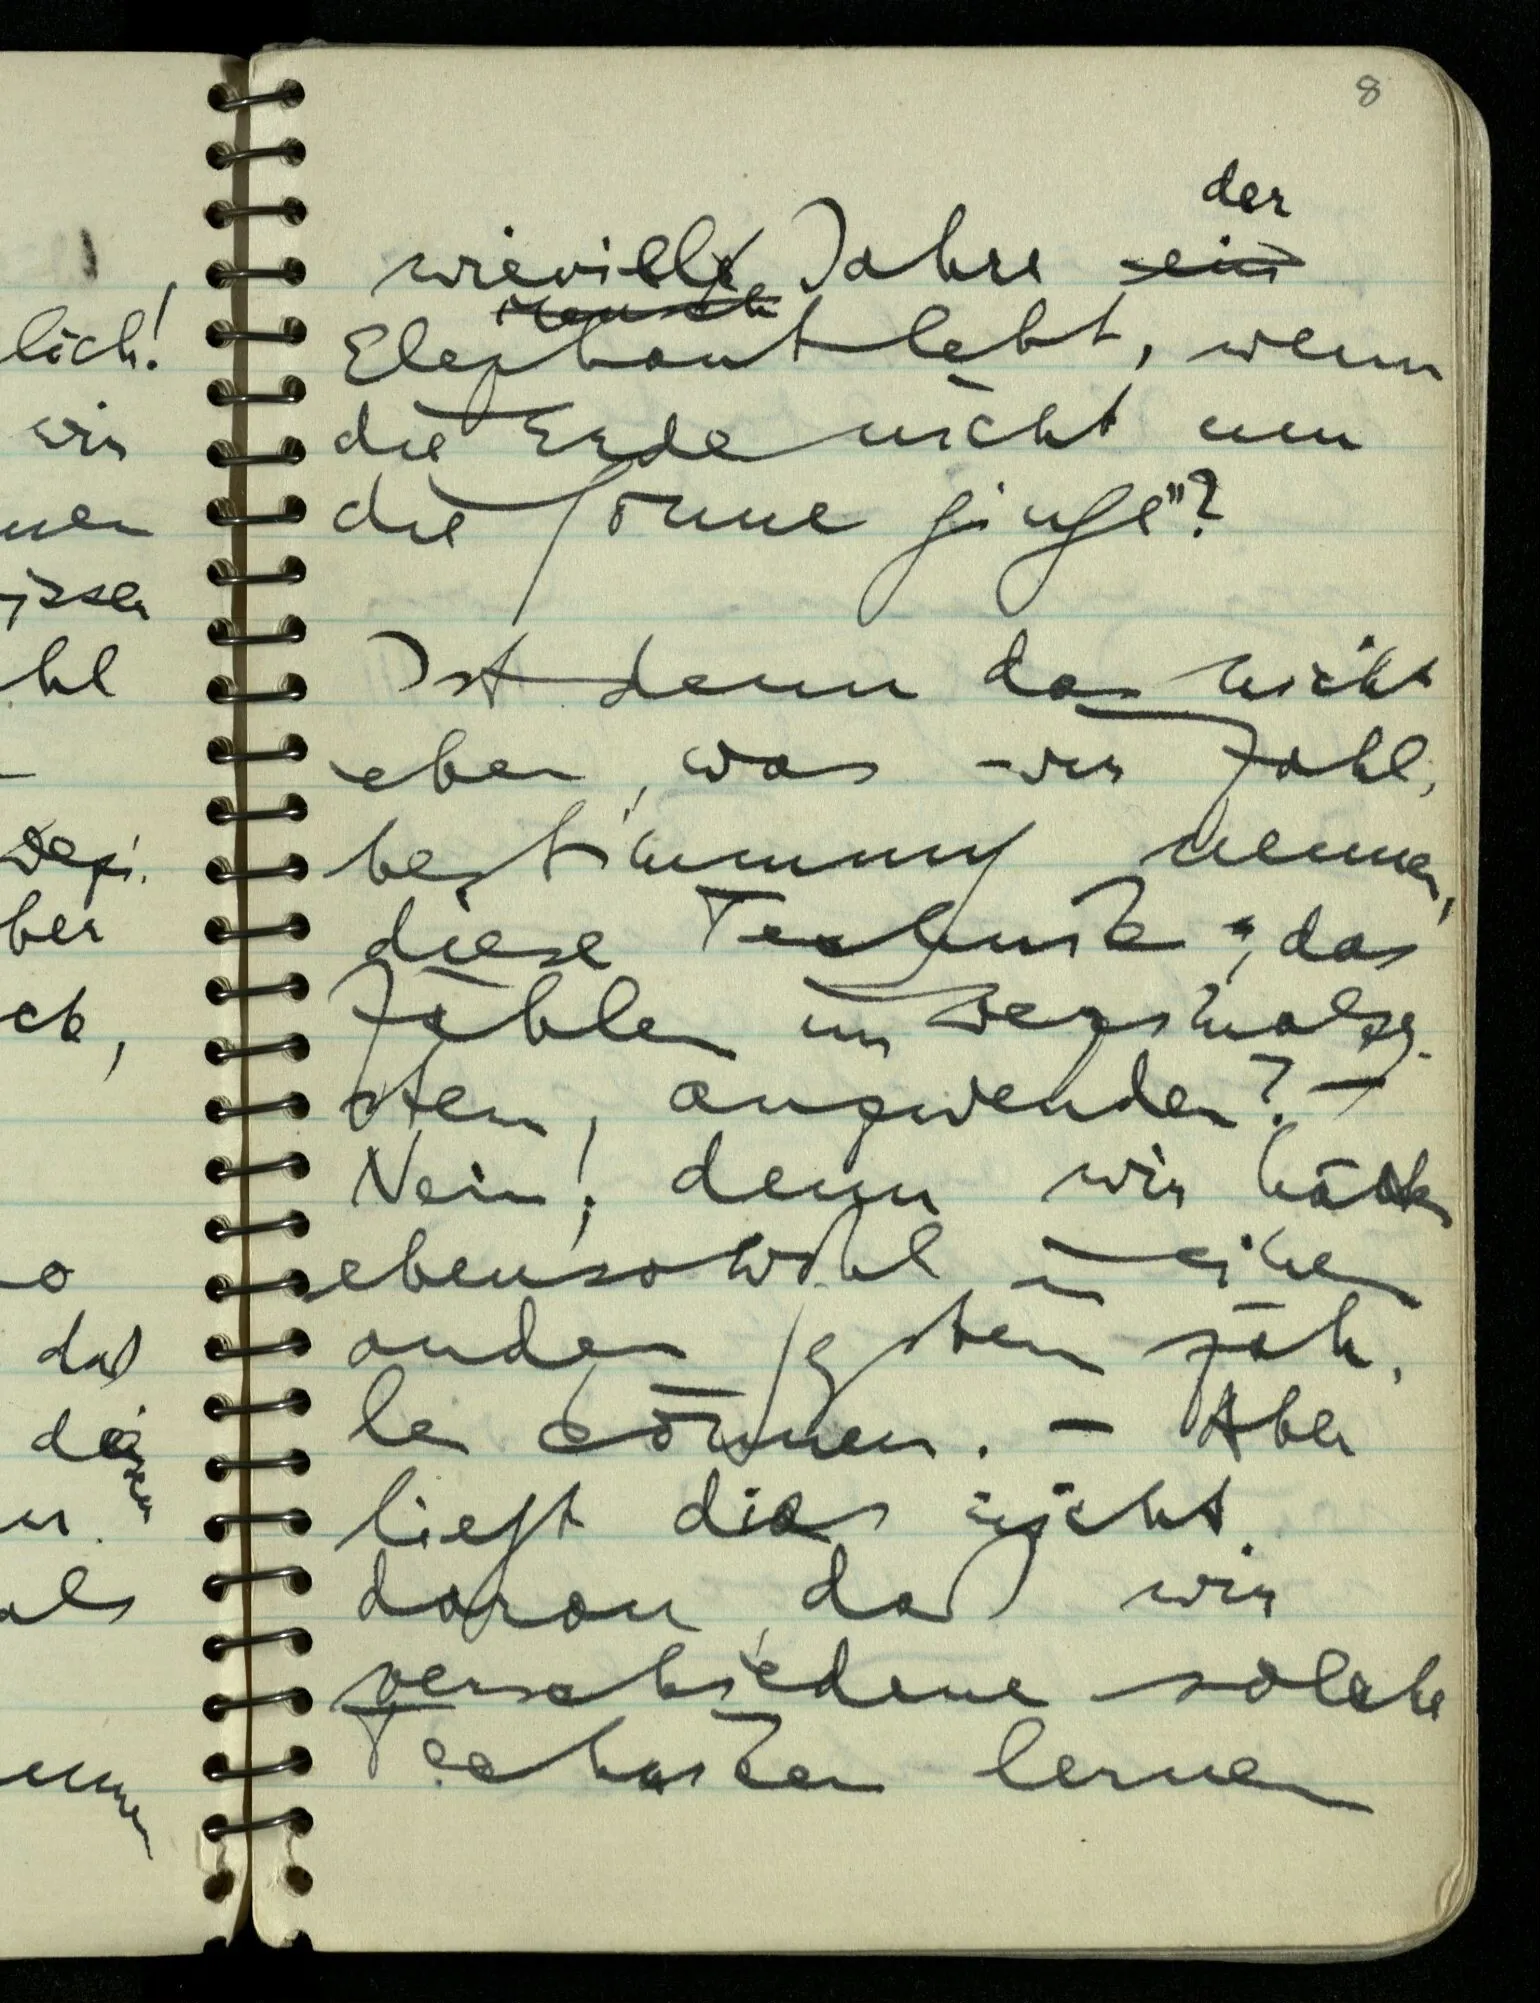 8
der
wieviele Jahre ein
Mensch
Elephant lebt, wenn
die Erde nicht um
die Sonne ginge"?
Ist denn das nicht
eben, was wir Zahl-
bestimmung nennen,
diese Technik, das
Zählen im Dezimalsy-
stem, anzuwenden? –
Nein!, denn wir hätten
ebensowohl in einem
andern System zäh-
len können. – Aber
liegt dies nicht
daran, daß wir
verschiedene solche
Techniken lernen
lich!
wir
issen
hl
Defi-
ber
ck,
o
daß
als